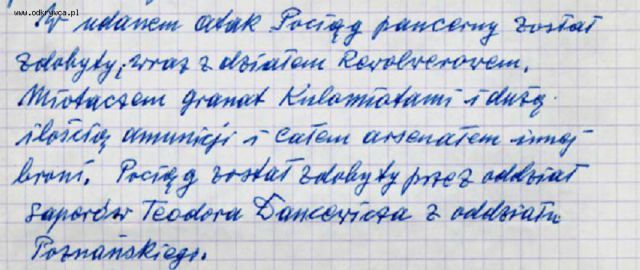 www.odkrywca.pl
W udanem atak Pociąg pancerny został
zdobyty; wraz z działem Rewolwerowem.
Miotaczem granat Kulomiotami i dużą
ilością amunicji i całem arsenałem innej
broni. Pociąg został zdobyty przez oddział
Saperów Teodora Dancewicza z oddziału
Poznańskiego.